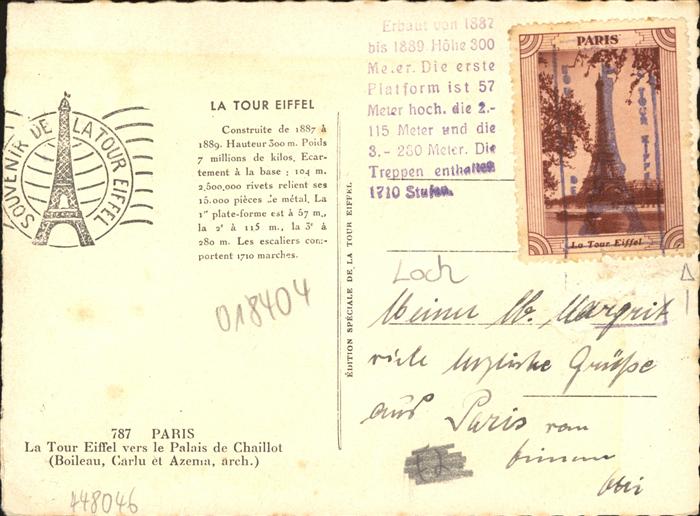 SOUVENIR DE LA TOUR EIFFEL
LA TOUR EIFFEL
Construite de 1887 à
1889. Hauteur 300 m. Poids
7 millions de kilos. Ecar-
tement à la base : 104 m.
2,500,000 rivets relient ses
15.000 pièces de métal. La
1re plate-forme est à 57 m,
la 2e à 115 m, la 3e à
280 m. Les escaliers com-
portent 1710 marches.
018404
787 PARIS
La Tour Eiffel vers le Palais de Chaillot
(Boileau, Carlu et Azema, arch.)
448046
ÉDITION SPÉCIALE DE LA TOUR EIFFEL
Erbaut von 1887
bis 1889. Höhe 300
Meter. Die erste
Platform ist 57
Meter hoch. die 2.-
115 Meter und die
3.- 280 Meter. Die
Treppen enthalten
1710 Stufen.
PARIS
La Tour Eiffel
Loch
Meiner lb. Margrit
viele herzliche Grüße
aus Paris von